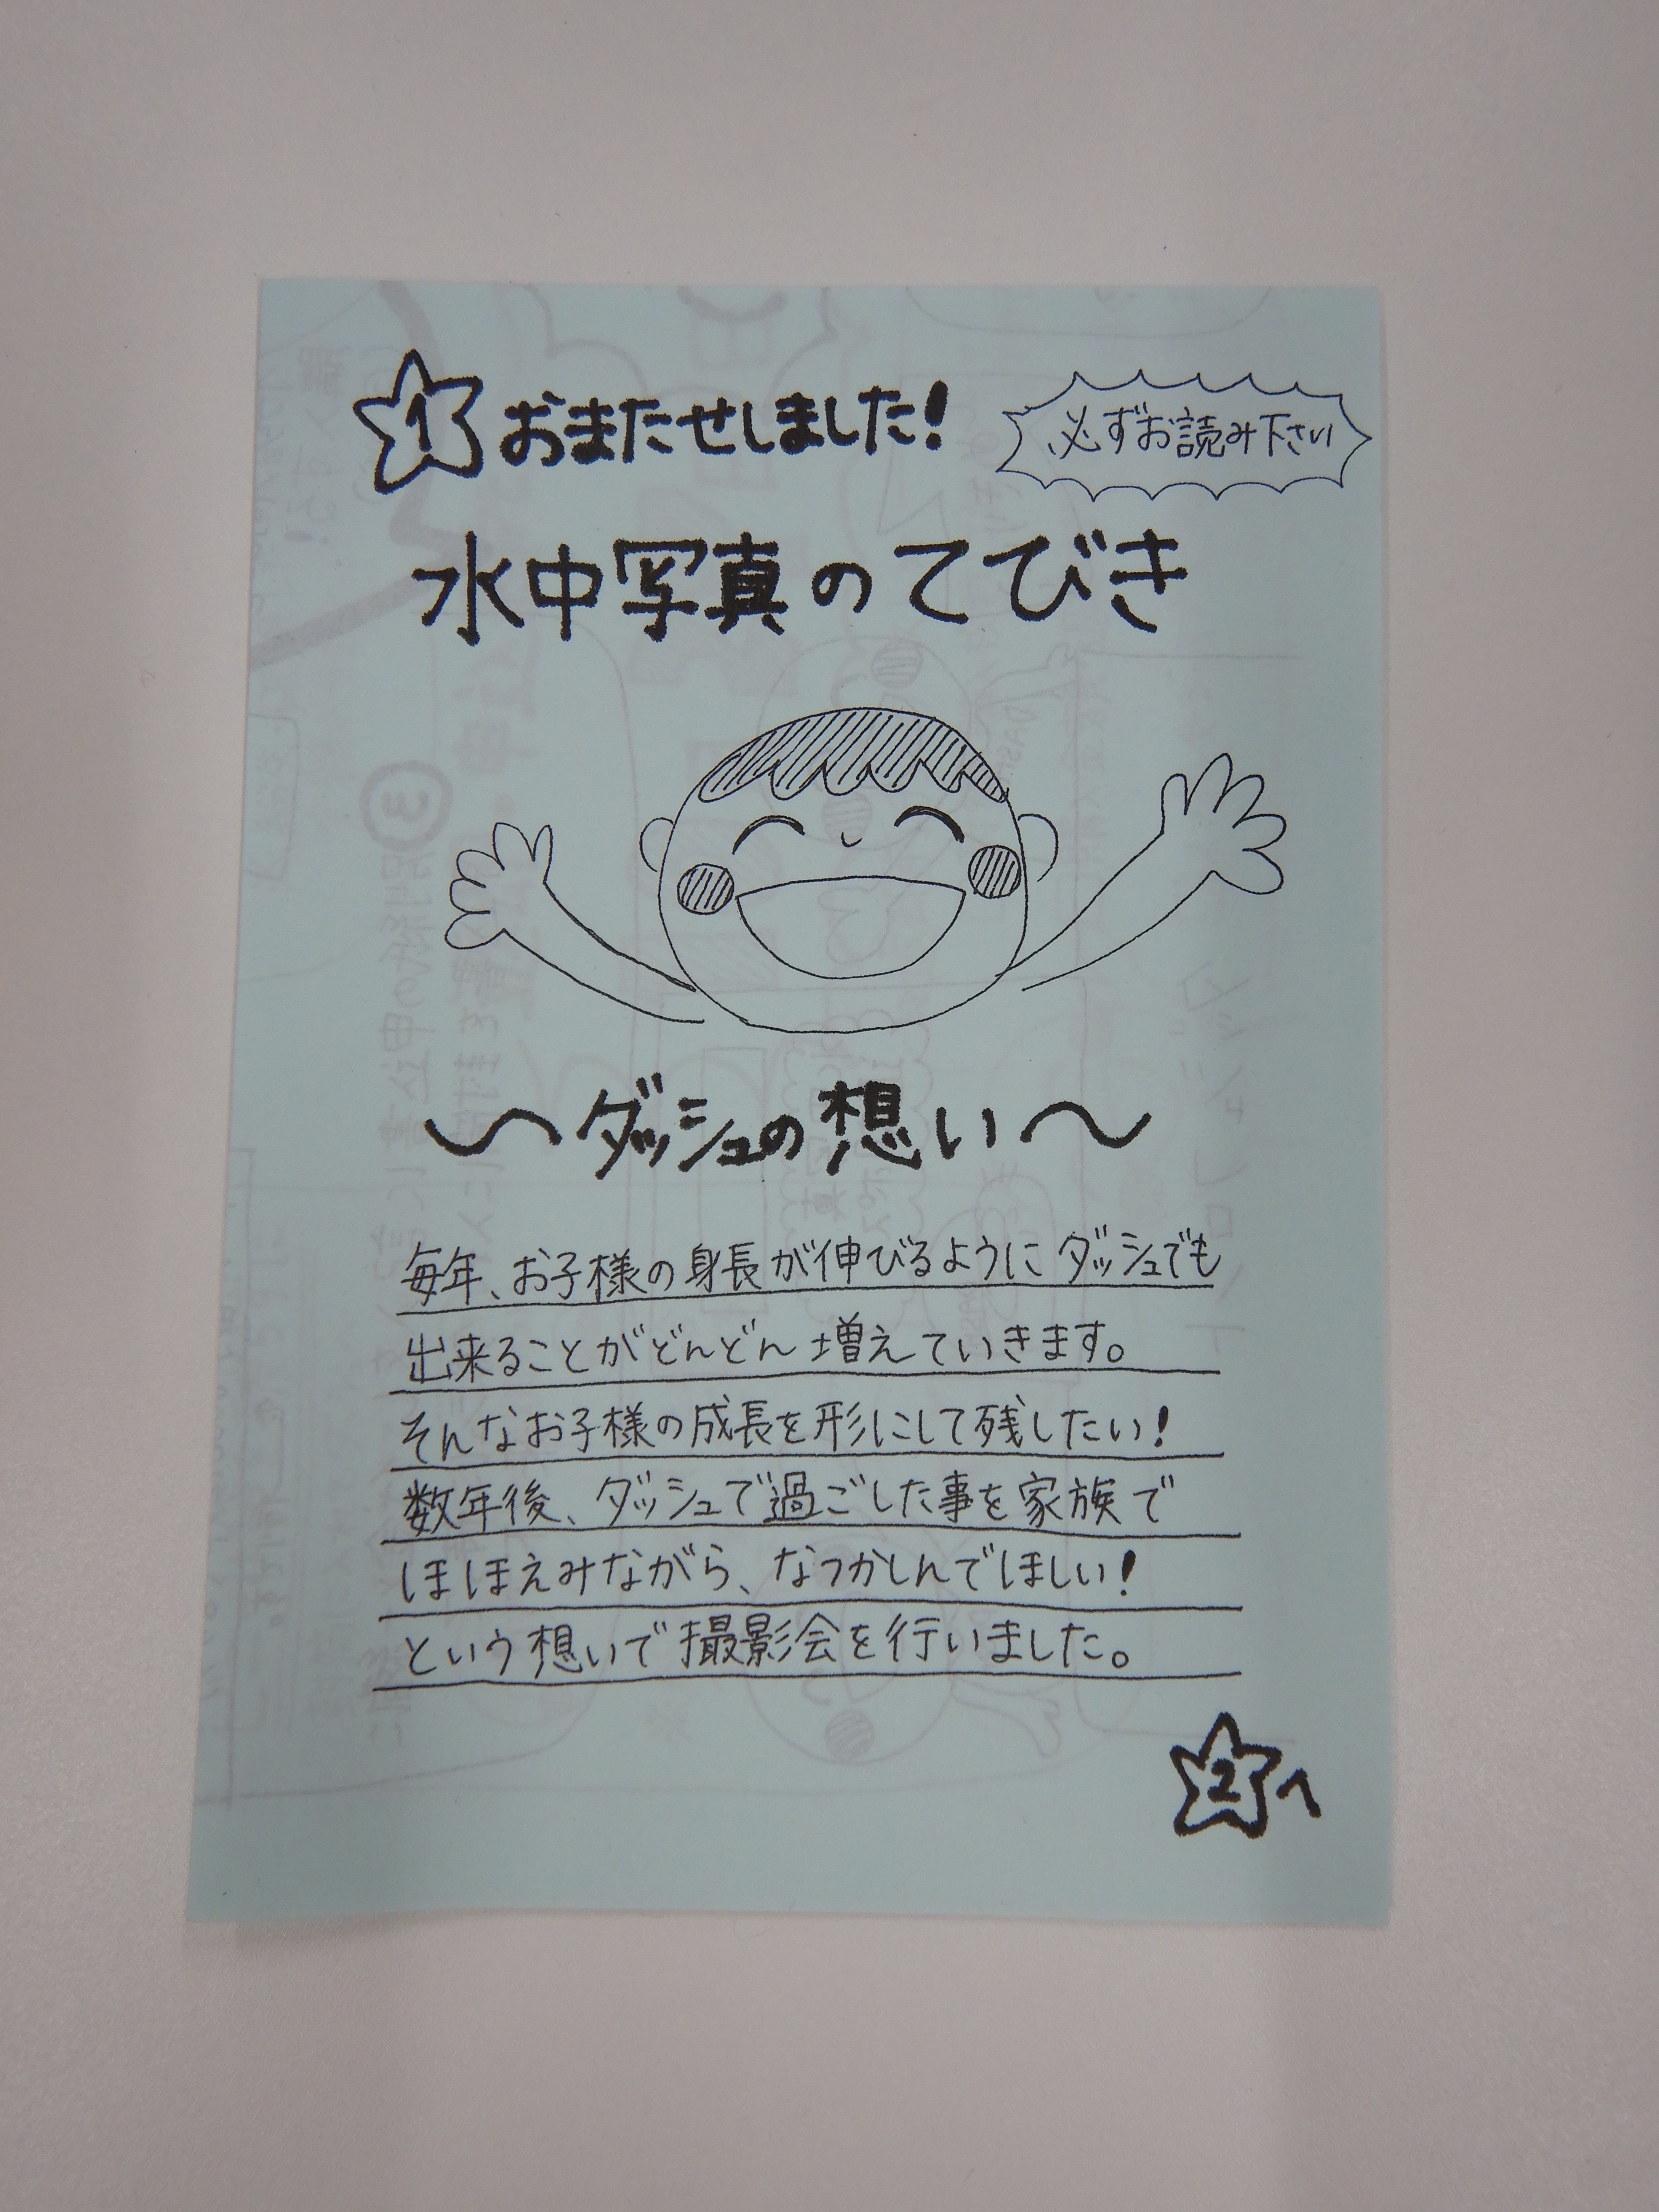 1 おまたせしました!
必ずお読み下さい
水中写真のてびき
～ダッシュの想い～
毎年、お子様の身長が伸びるようにダッシュでも
出来ることがどんどん増えていきます。
そんなお子様の成長を形にして残したい!
数年後、ダッシュで過ごした事を家族で
ほほえみながら、なつかしんでほしい!
という想いで撮影会を行いました。
2へ